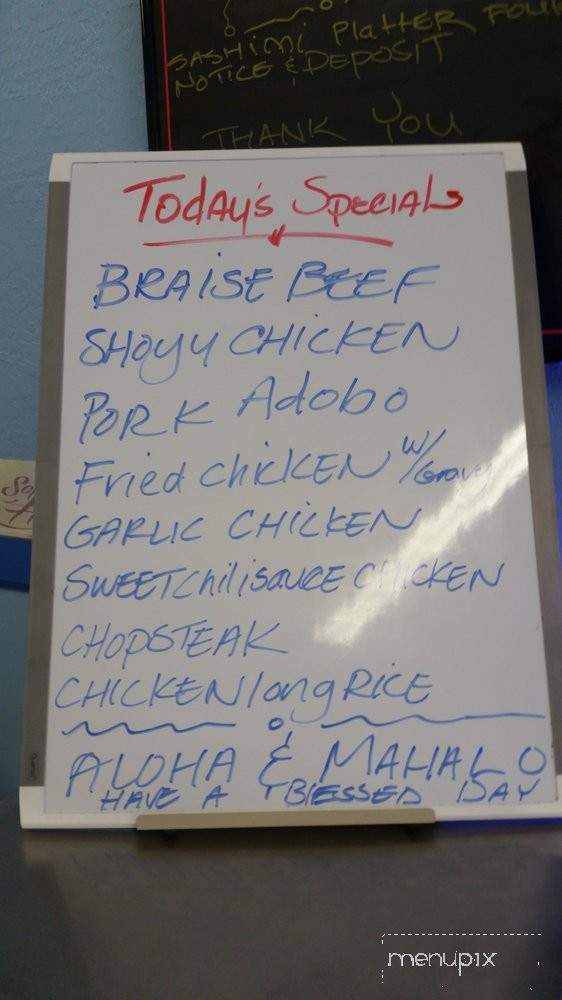 SASHIMI PLATTER FOUR
NOTICE & DEPOSIT
THANK YOU
Today's Specials
BRAISE BEEF
SHOYU CHICKEN
PORK Adobo
Fried CHICKEN W/ Gravy
GARLIC CHICKEN
SWEET chili sauce CHICKEN
CHOPSTEAK
CHICKEN long RICE
ALOHA & MAHALO
HAVE A BLESSED DAY
menupix